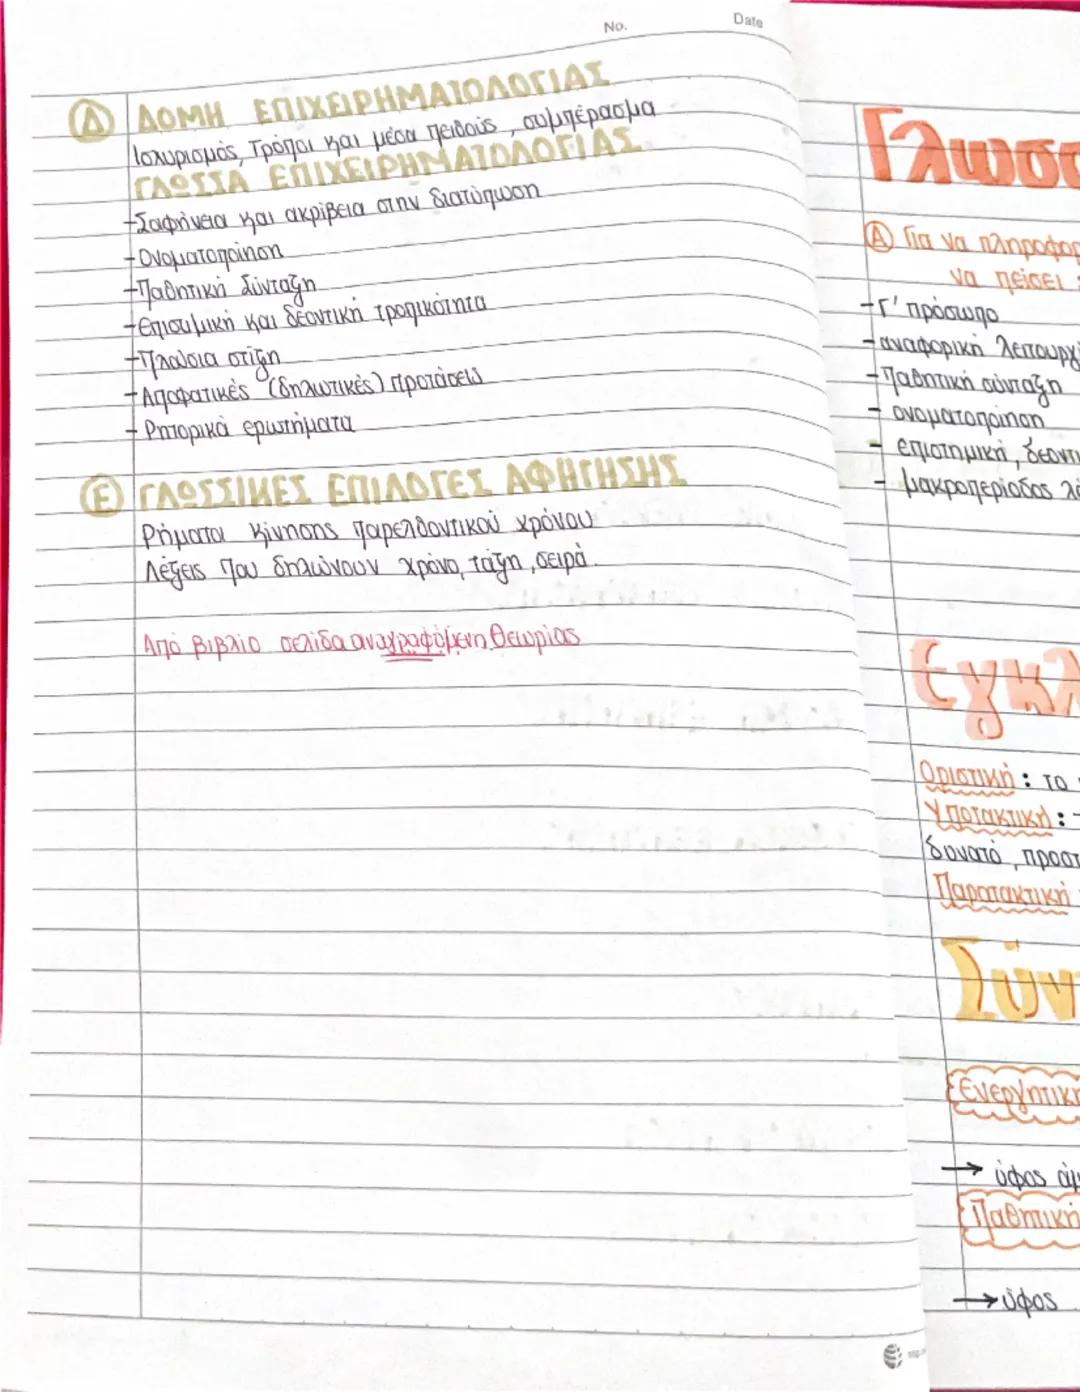 No.
Date
Δ ΔΟΜΗ ΕΠΙΧΕΙΡΗΜΑΤΟΛΟΓΙΑΣ
Ισχυρισμός, Τρόποι και μέσα πειθούς, συμπέρασμα
ΓΛΩΣΣΑ ΕΠΙΧΕΙΡΗΜΑΤΟΛΟΓΙΑΣ
-Σαφήνεια και ακρίβεια στην διατύπωση
-Ονοματοποίηση
-Παθητική Σύνταξη
-Επισυμική και δεοντική τροπικότητα
-Πλούσια στίξη
-Αποφατικές (δηλωτικές) προτάσεις
-Ρητορικά ερωτήματα
Ε ΓΛΩΣΣΙΚΕΣ ΕΠΙΛΟΓΕΣ ΑΦΗΓΗΣΗΣ
Ρήματα κίνησης παρελθοντικού χρόνου
Λέξεις που δηλώνουν χρόνο, τάξη, σειρά.
Από βιβλίο σελίδα αναγραφόμενη θεωρίας
Γλωσσ
Α Για να πληροφορ
να πείσει
-Γ' πρόσωπο
-αναφορική λειτουργί
-Παθητική σύνταξη
- ονοματοποίηση
- επιστημική, δεοντι
- μακροπερίοδος λό
Εγκλ
Οριστική: το
Υποτακτική:
δυνατό, προστ
Παρατακτική
Σύν
Ενεργητική
→ ύφος άμ
Παθητική
→ ύφος